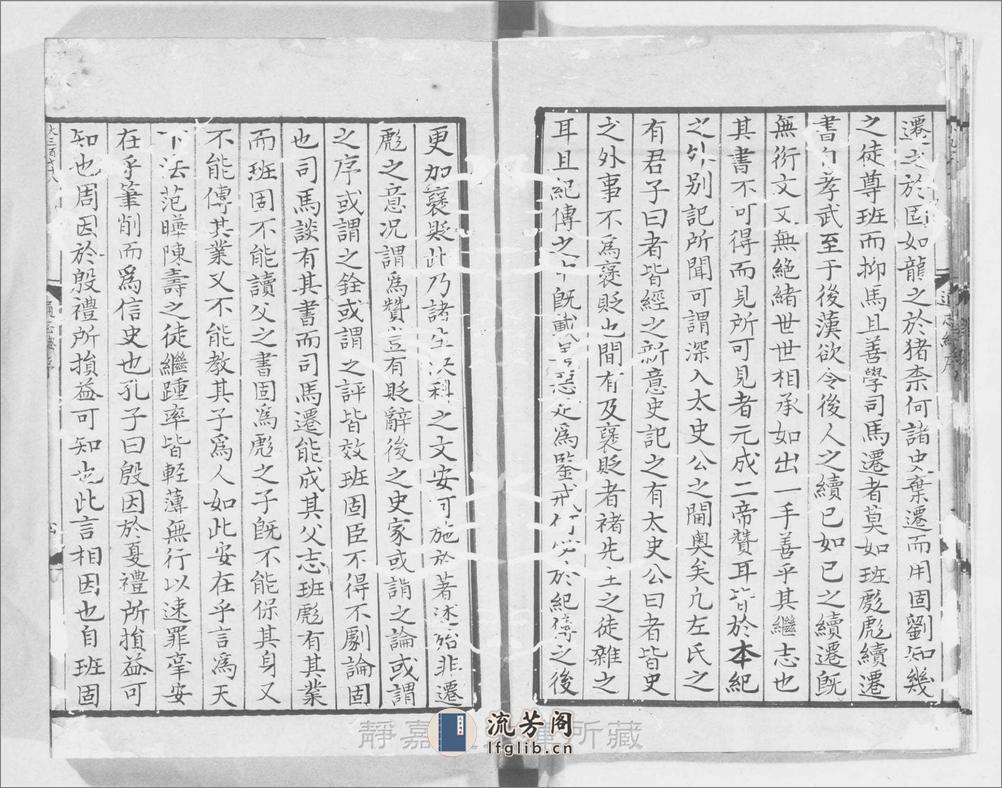 遷之於固如龍之於猪柰何諸史棄遷而用固劉知幾
之徒尊班而抑馬且善學司馬遷者莫如班彪彪續遷
書自孝武至于後漢欲令後人之續已如已之續遷旣
無衍文又無絶緒世世相承如出一手善乎其繼志也
其書不可得而見所可見者元成二帝贊耳皆於本紀
之外別記所聞可謂深入太史公之閫奧矣凢左氏之
有君子曰者皆經之新意史記之有太史公曰者皆史
之外事不爲褒貶也間有及褒貶者褚先生之徒雜之
耳且紀傳之中旣載善惡足爲鑒戒何必於紀傳之後
更加褒貶此乃諸生決科之文安可施於著述殆非遷
彪之意况謂爲贊豈有貶辭後之史家或謂之論或謂
之序或謂之銓或謂之評皆效班固臣不得不劇論固
也司馬談有其書而司馬遷能成其父志班彪有其業
而班固不能讀父之書固爲彪之子旣不能保其身又
不能傳其業又不能教其子爲人如此安在乎言爲天
下法范曄陳壽之徒繼踵率皆輕薄無行以速罪辜安
在乎筆削而爲信史也孔子曰殷因於夏禮所損益可
知也周因於殷禮所損益可知也此言相因也自班固
通志總序
流芳阁
lfglib.cn
靜嘉 所藏